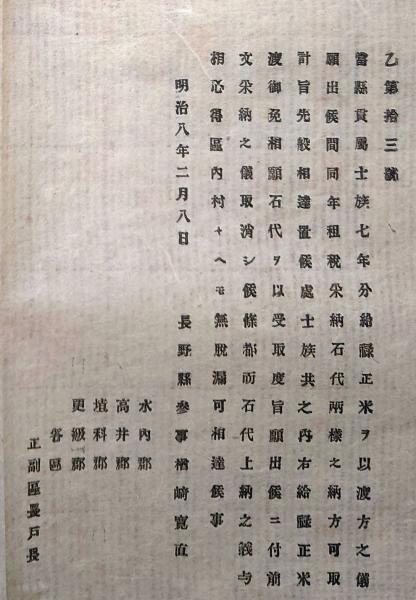 乙第拾三號
當縣貫屬士族七年分給祿正米ヲ以渡方之儀
願出候間同年租税米納石代兩樣之納方可取
計旨先般相達置候處士族共之内右給祿正米
渡御免相願石代ヲ以受取度旨願出候ニ付前
文米納之儀取消シ候條都而石代上納之義与
相心得區内村々ヘモ無脱漏可相達候事
明治八年二月八日
長野縣參事楢崎寛直
水内郡
高井郡
埴科郡
更級郡
各區
正副區長戸長